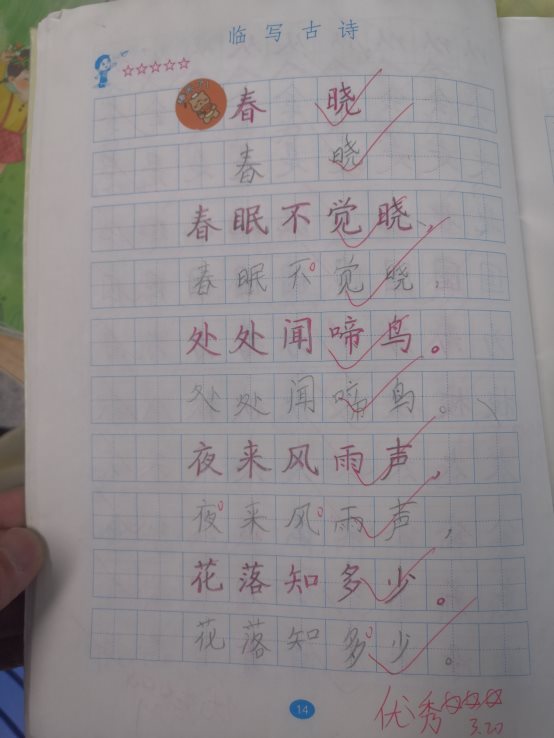 临写古诗
☆☆☆☆☆
春晓
春晓
春眠不觉晓，
春眠不觉晓，
处处闻啼鸟。
处处闻啼鸟。
夜来风雨声，
夜来风雨声，
花落知多少。
花落知多少。
14
优秀☆☆☆
3.20